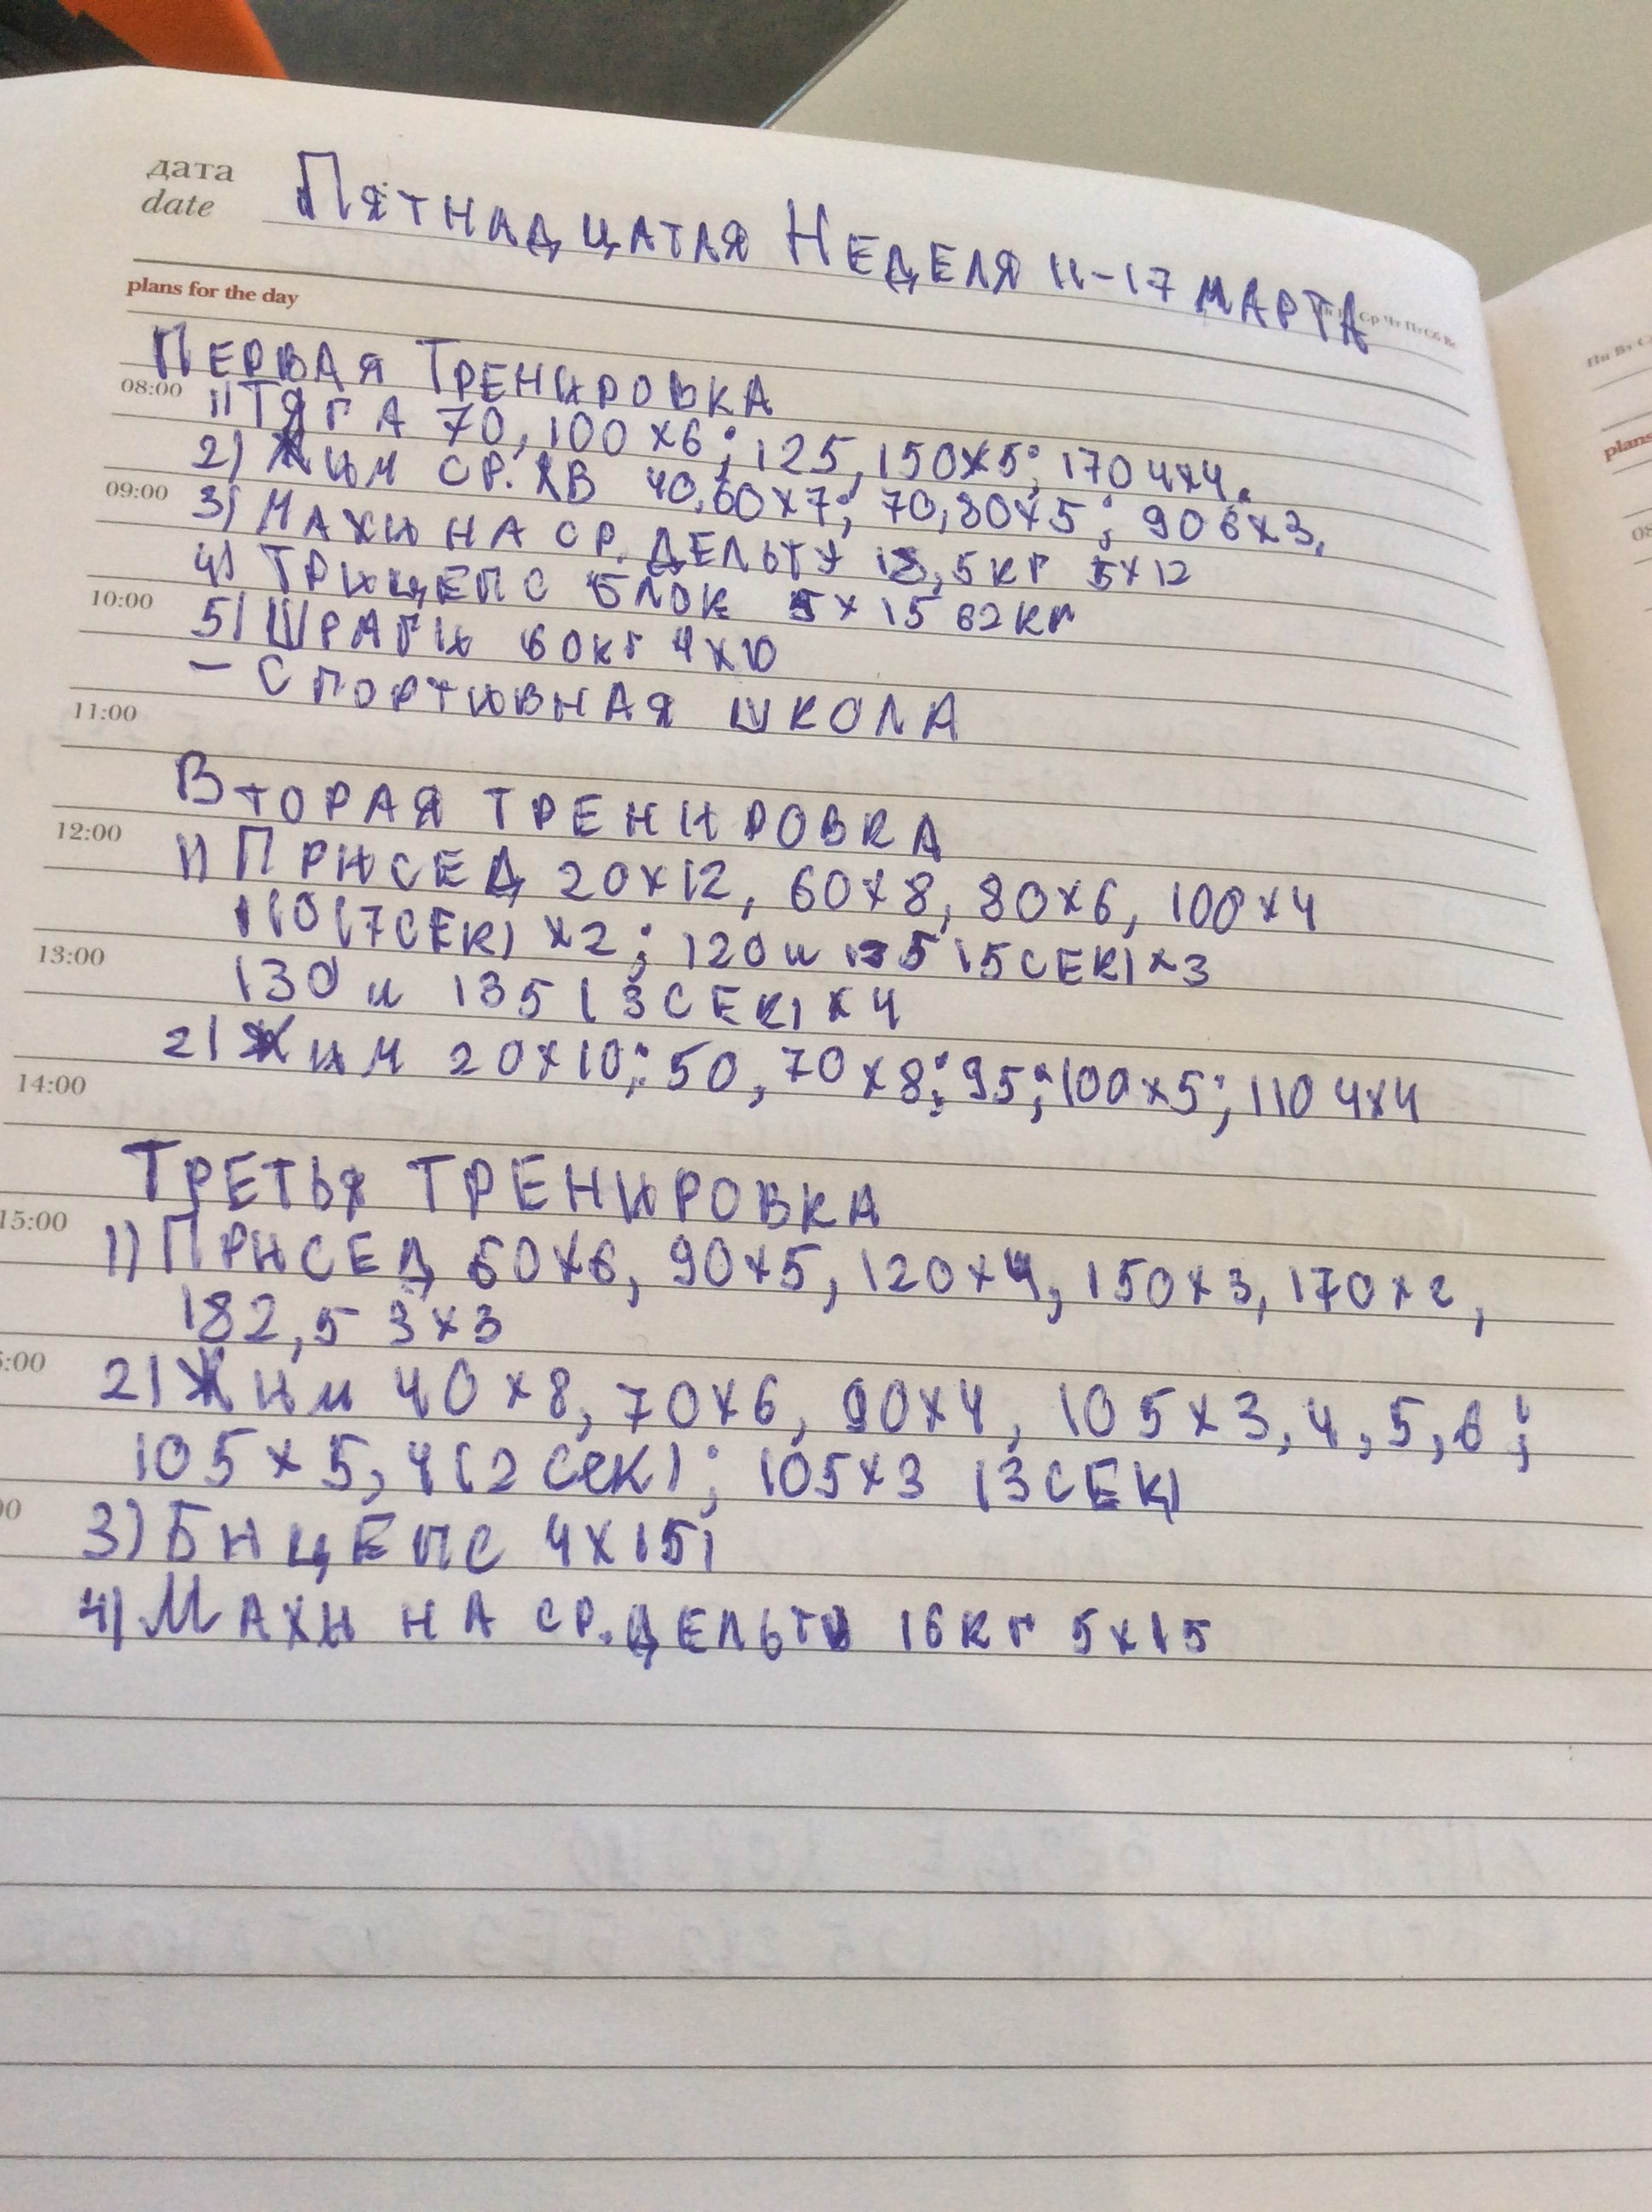 дата
date
Пятнадцатая Неделя 11-17 марта
plans for the day
Первая Тренировка
08:00
1) Тяга 70, 100х6; 125, 150х5; 170 4х4.
2) Жим ср. хв 40,60х7; 70,80х5; 90 6х3.
09:00
3) Махи на ср. дельту 18,5кг 5х12
4) Трицепс блок 5х15 62кг
10:00
5) Шраги 60кг 4х10
- Спортивная школа
11:00
Вторая тренировка
12:00
1) Присед 20х12, 60х8, 80х6, 100х4
110 (7сек) х2; 120 и 125 (5сек) х3
13:00
130 и 135 (3сек) х4
2) Жим 20х10; 50, 70х8; 95; 100х5; 110 4х4
14:00
Третья тренировка
15:00
1) Присед 60х6, 90х5, 120х4, 150х3, 170х2,
182,5 3х3
:00
2) Жим 40х8, 70х6, 90х4, 105х3,4,5,6;
105х5,4 (2 сек); 105х3 (3сек)
00
3) Бицепс 4х15;
4) Махи на ср. дельту 16кг 5х15